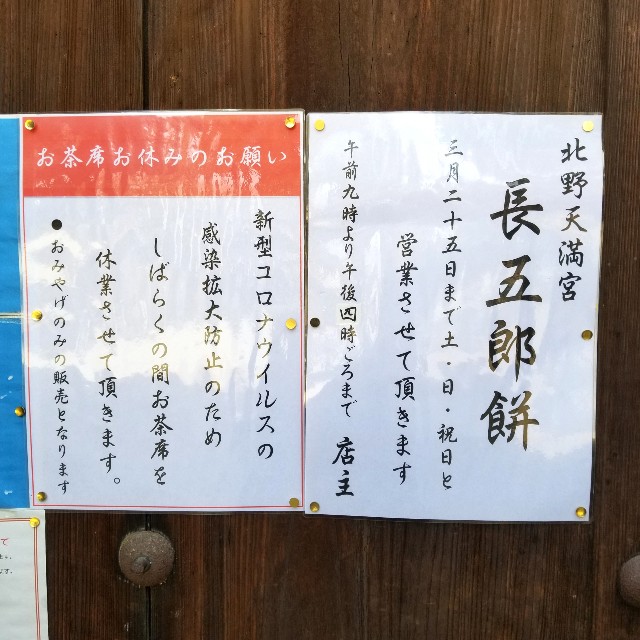 北野天満宮
長五郎餅
三月二十五日まで土・日・祝日と
営業させて頂きます
午前九時より午後四時ごろまで
店主
お茶席お休みのお願い
新型コロナウイルスの
感染拡大防止のため
しばらくの間お茶席を
休業させて頂きます。
●おみやげのみの販売となります